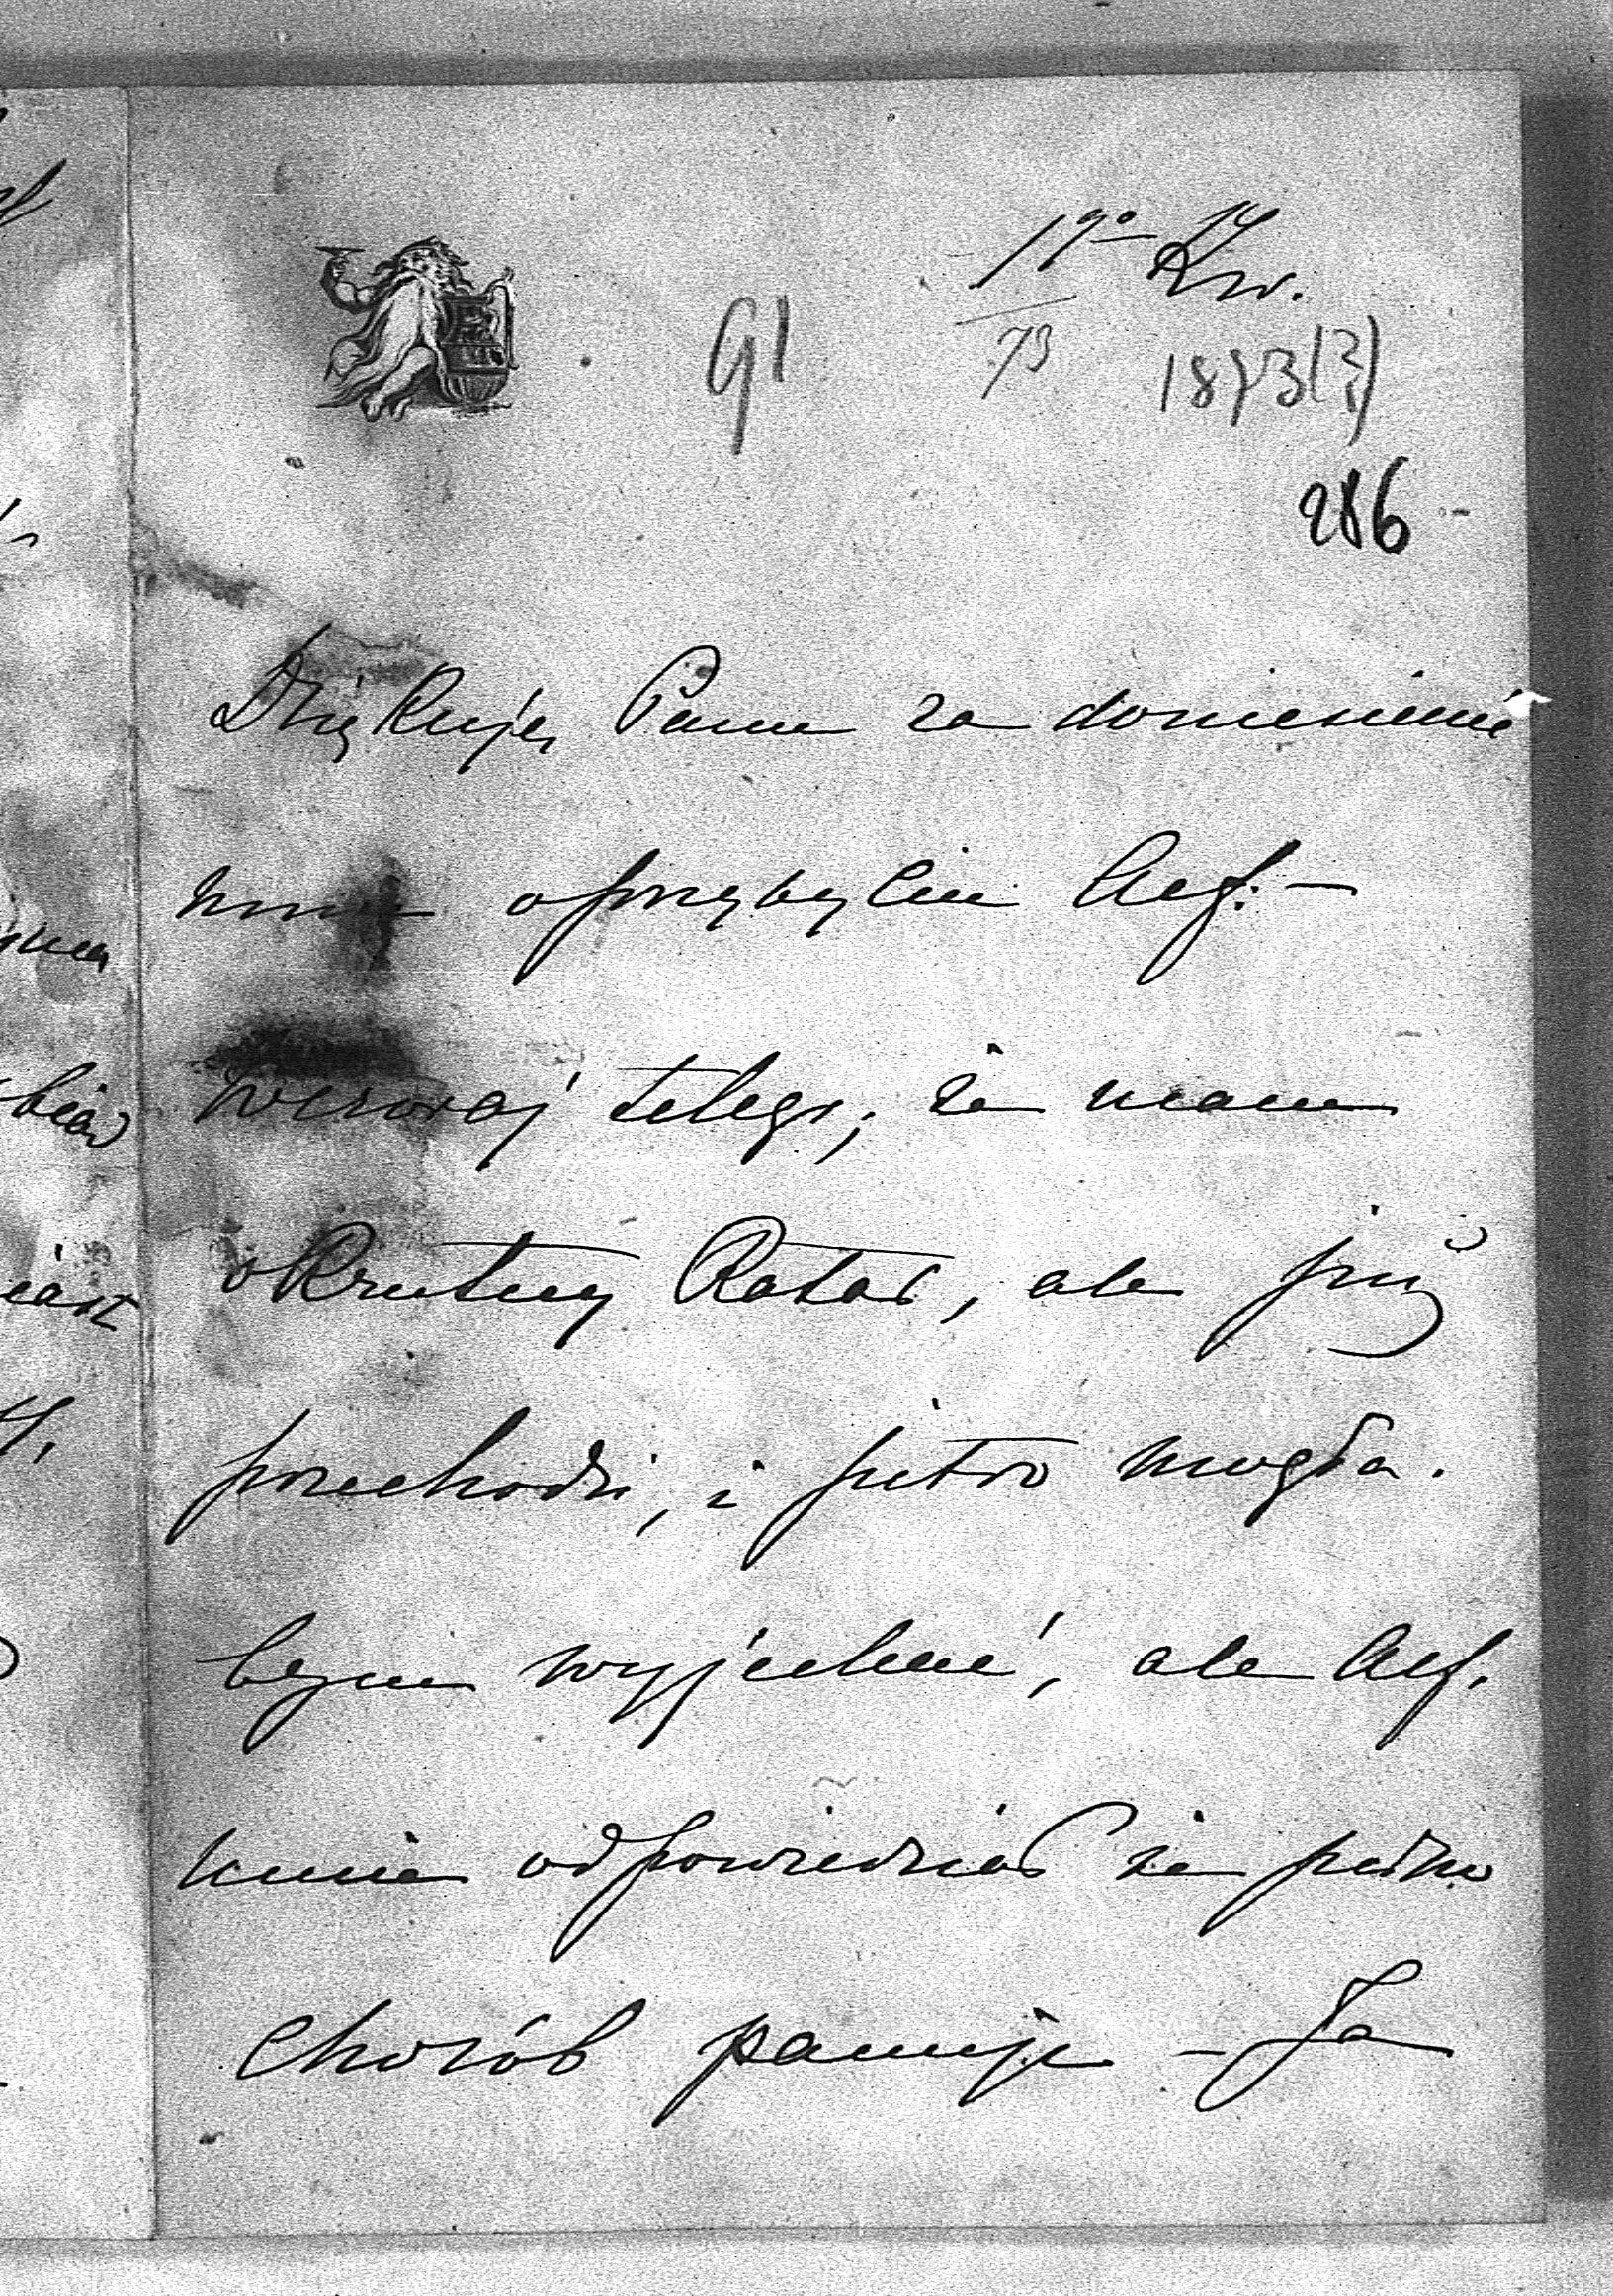 19º Kw.
73
91
1873(?)
286
Dziękuję Panu za doniesienie
mnie o przybyciu Alf. —
wczoraj telegr, że mam
okrutny Katar, ale już
przechodzi, i jutro mogła
bym wyjechać, ale Alf.
mnie odpowiedział że pełno
chorób panuje – Ja